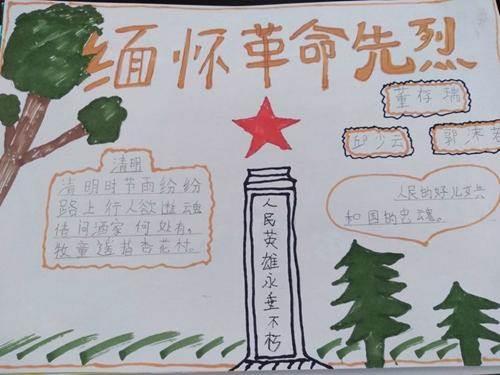 缅怀革命先烈
董存瑞
邱少云
郭沫若
清明
清明时节雨纷纷
路上行人欲断魂
借问酒家何处有，
牧童遥指杏花村。
人民的好儿女兵
和国的忠魂。
人民英雄永垂不朽